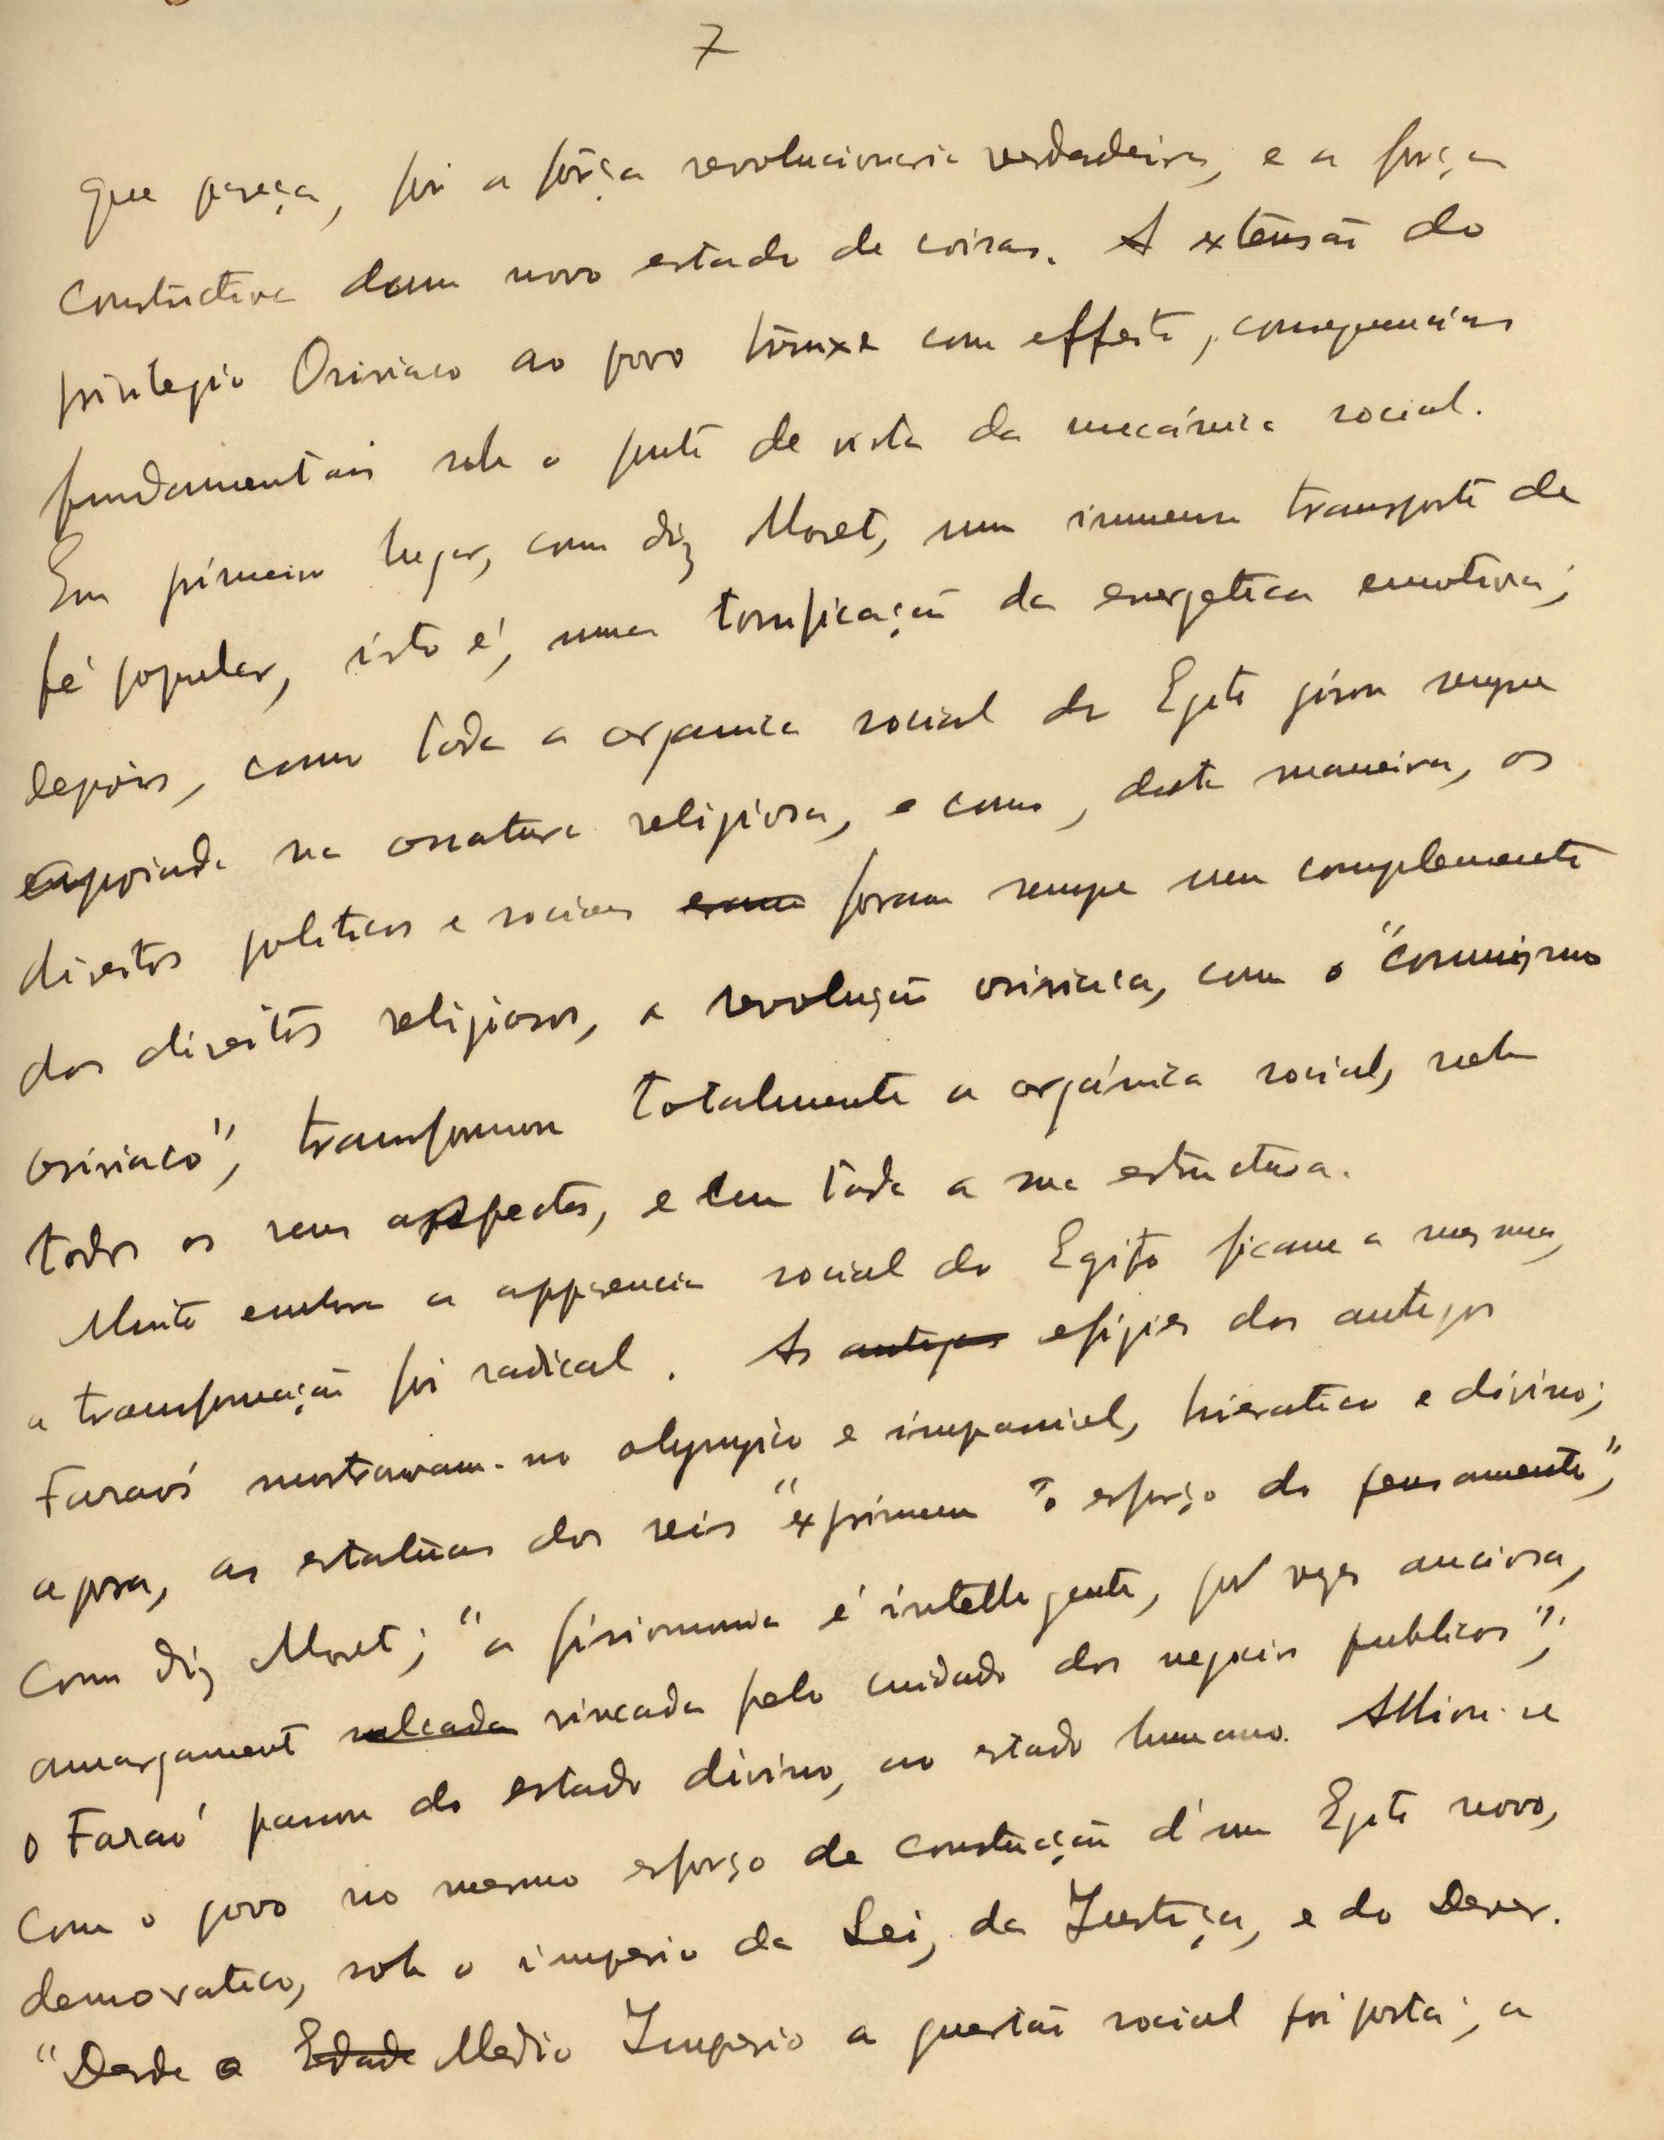 7
que pareça, foi a fôrça revolucionaria verdadeira, e a força
constructiva dum novo estado de coisas. A extensão do
privilegio Osiriaco ao povo trouxe com effeito, consequencias
fundamentais sob o ponto de vista da mecánica social.
Em primeiro lugar, como diz Moret, um immenso transporte de
fé popular, isto é, uma tonificação da energetica emotiva;
depois, como toda a organica social do Egito girou sempre
appoiada na ossatura religiosa, e como, desta maneira, os
direitos politicos e sociaes eram foram sempre um complemento
dos direitos religiosos, a revolução osiriaca, com o "comunismo
osiriaco", transformou totalmente a orgánica social, sob
todos os seus aspectos, e em toda a sua estructura.
Muito embora a apparencia social do Egito ficasse a mesma,
a transformação foi radical. As antigas efigies dos antigos
Faraós mostravam-no olympico e impassivel, hieratico e divino;
agora, as estatuas dos reis "exprimem "o esforço do pensamento",
como diz Moret; "a fisionomia é intelligente, por vezes anciosa,
amargament sulcada vincada pelo cuidado dos negocios publicos";
o Faraó passou do estado divino, ao estado humano. Alliou-se
com o povo no mesmo esforço de construcção d'um Egito novo,
democratico, sob o imperio da Lei, da Justiça, e do Dever.
"Desde o Edade Medio Imperio a questão social foi posta; a